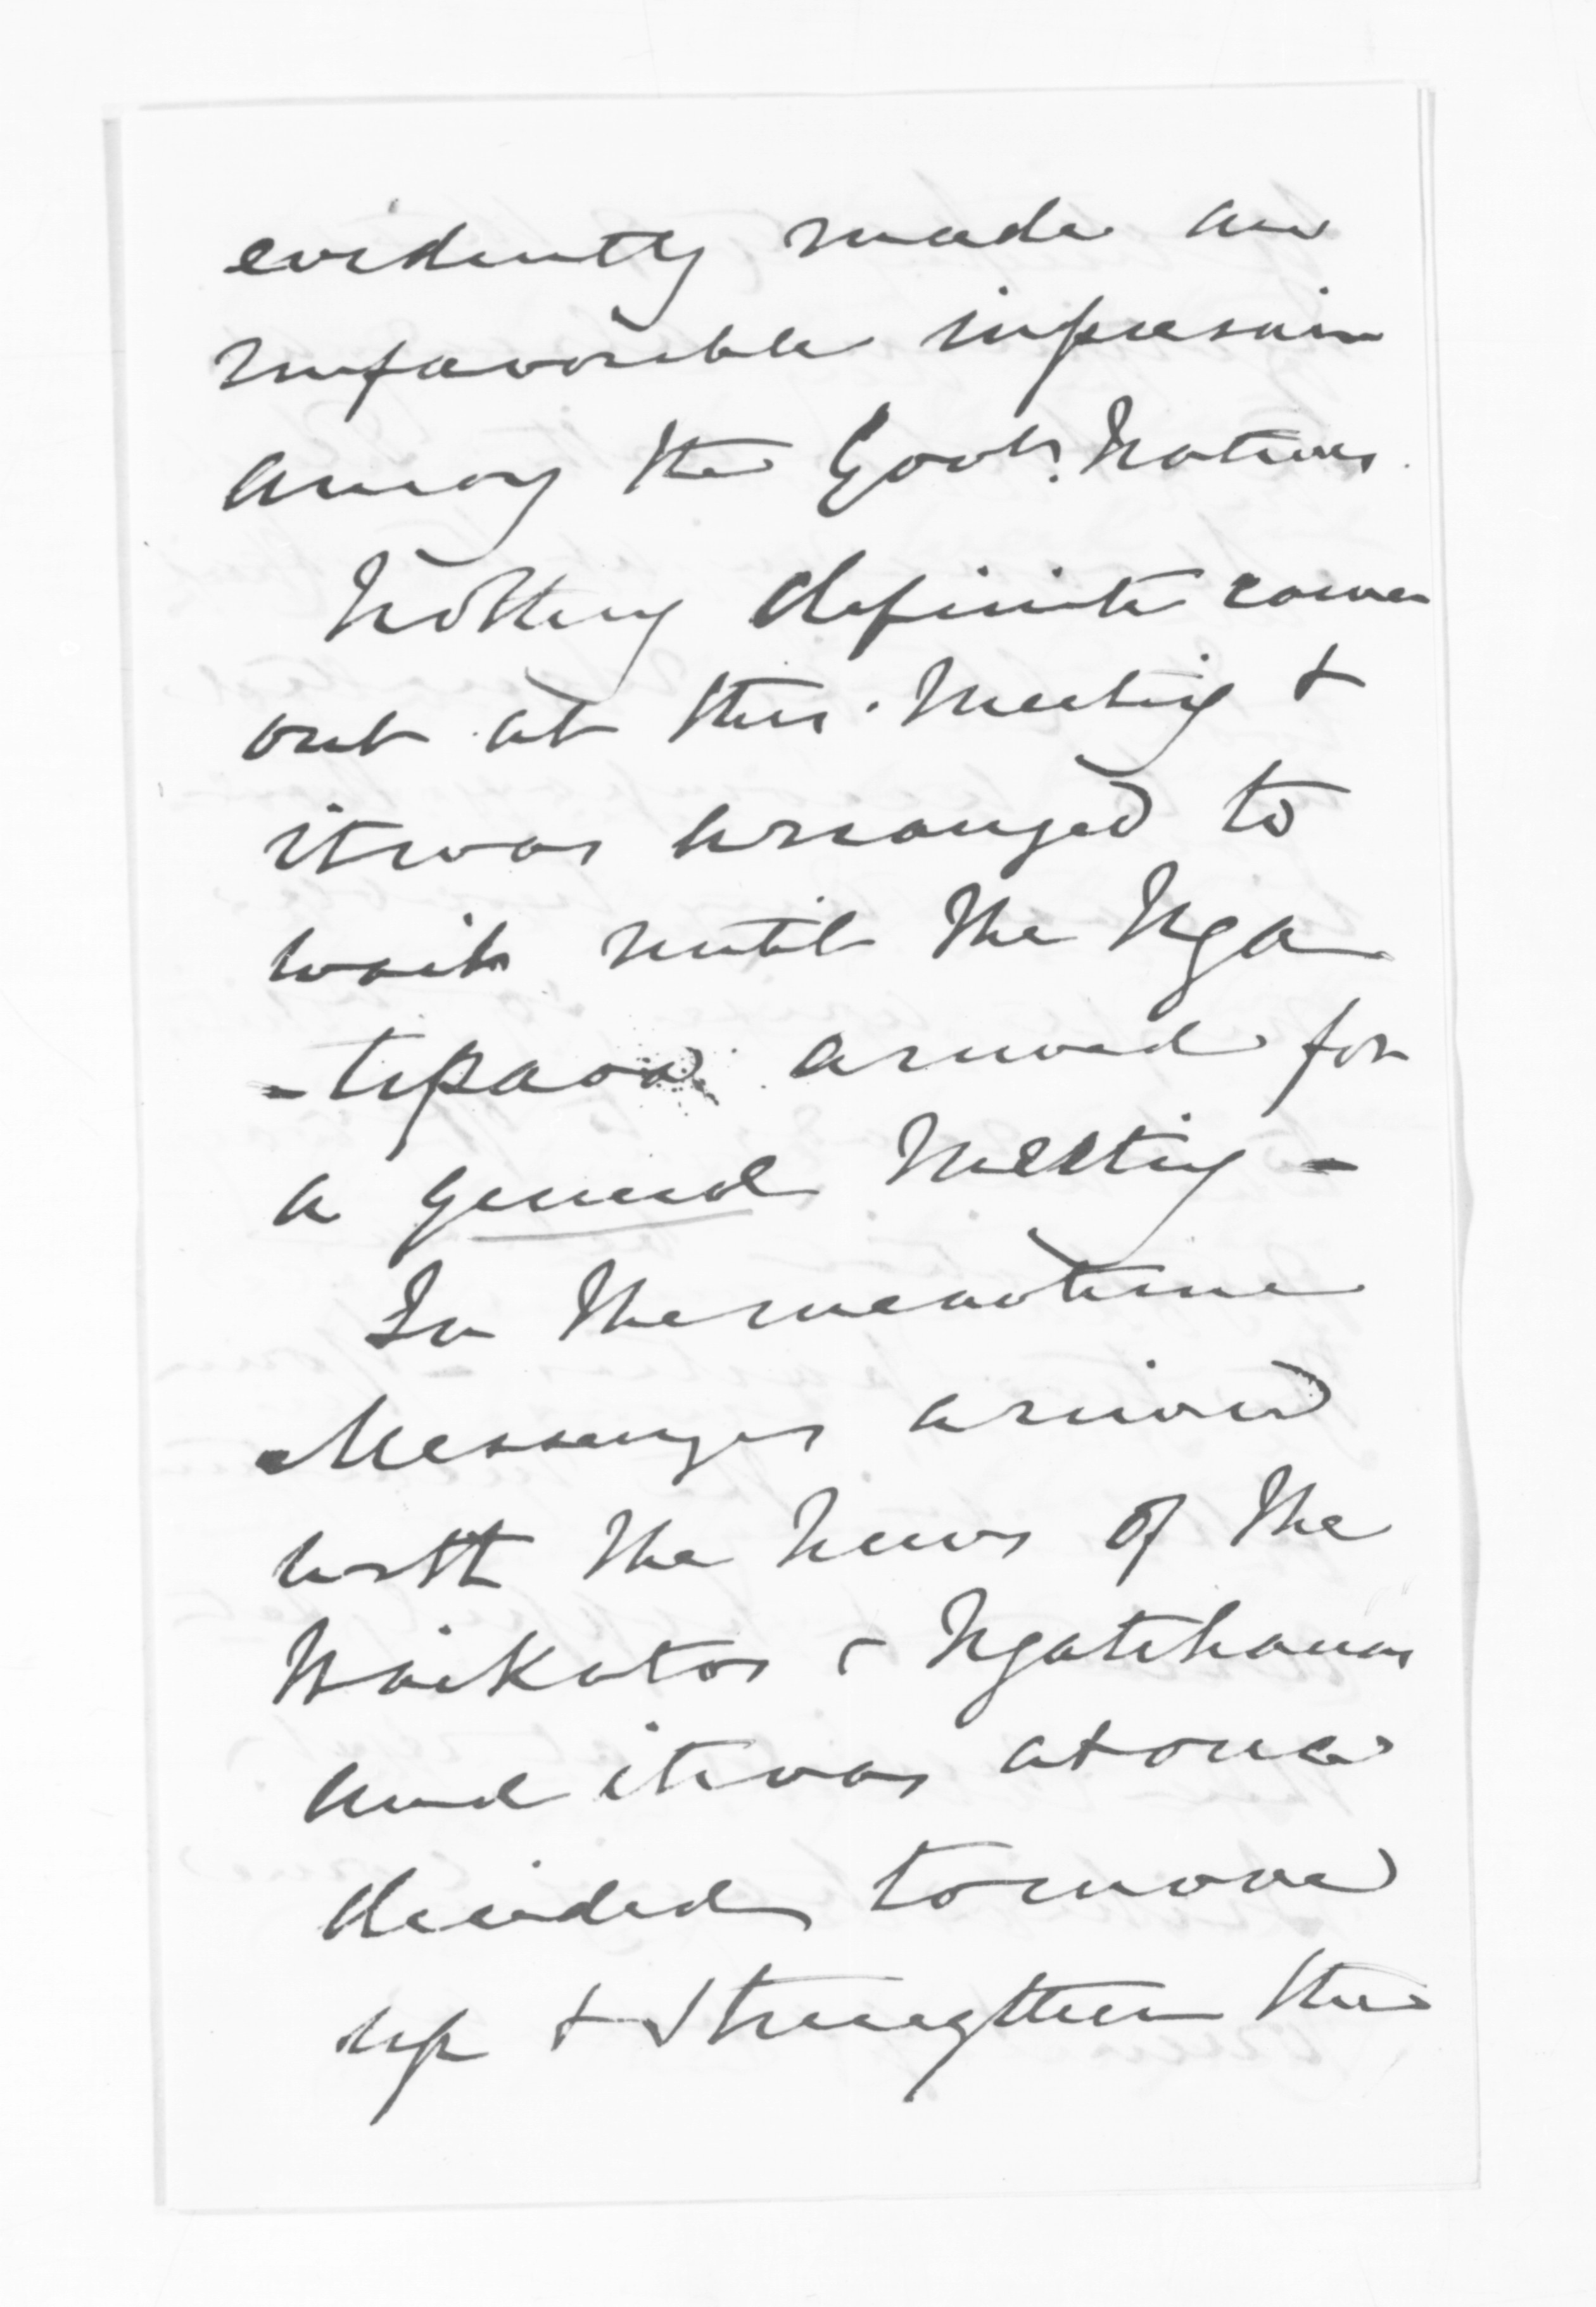 evidently made an
unfavorable impression
among the Govt. Natives.
Nothing definite came
out at this Meeting &
it was arranged to
wait until the Nga
-tipaoa arrived for
a general Meeting -
In the meantime
Messengers arrived
with the News of the
Waikatos & Ngatihauas
and it was at once
decided to move
up & strengthen the